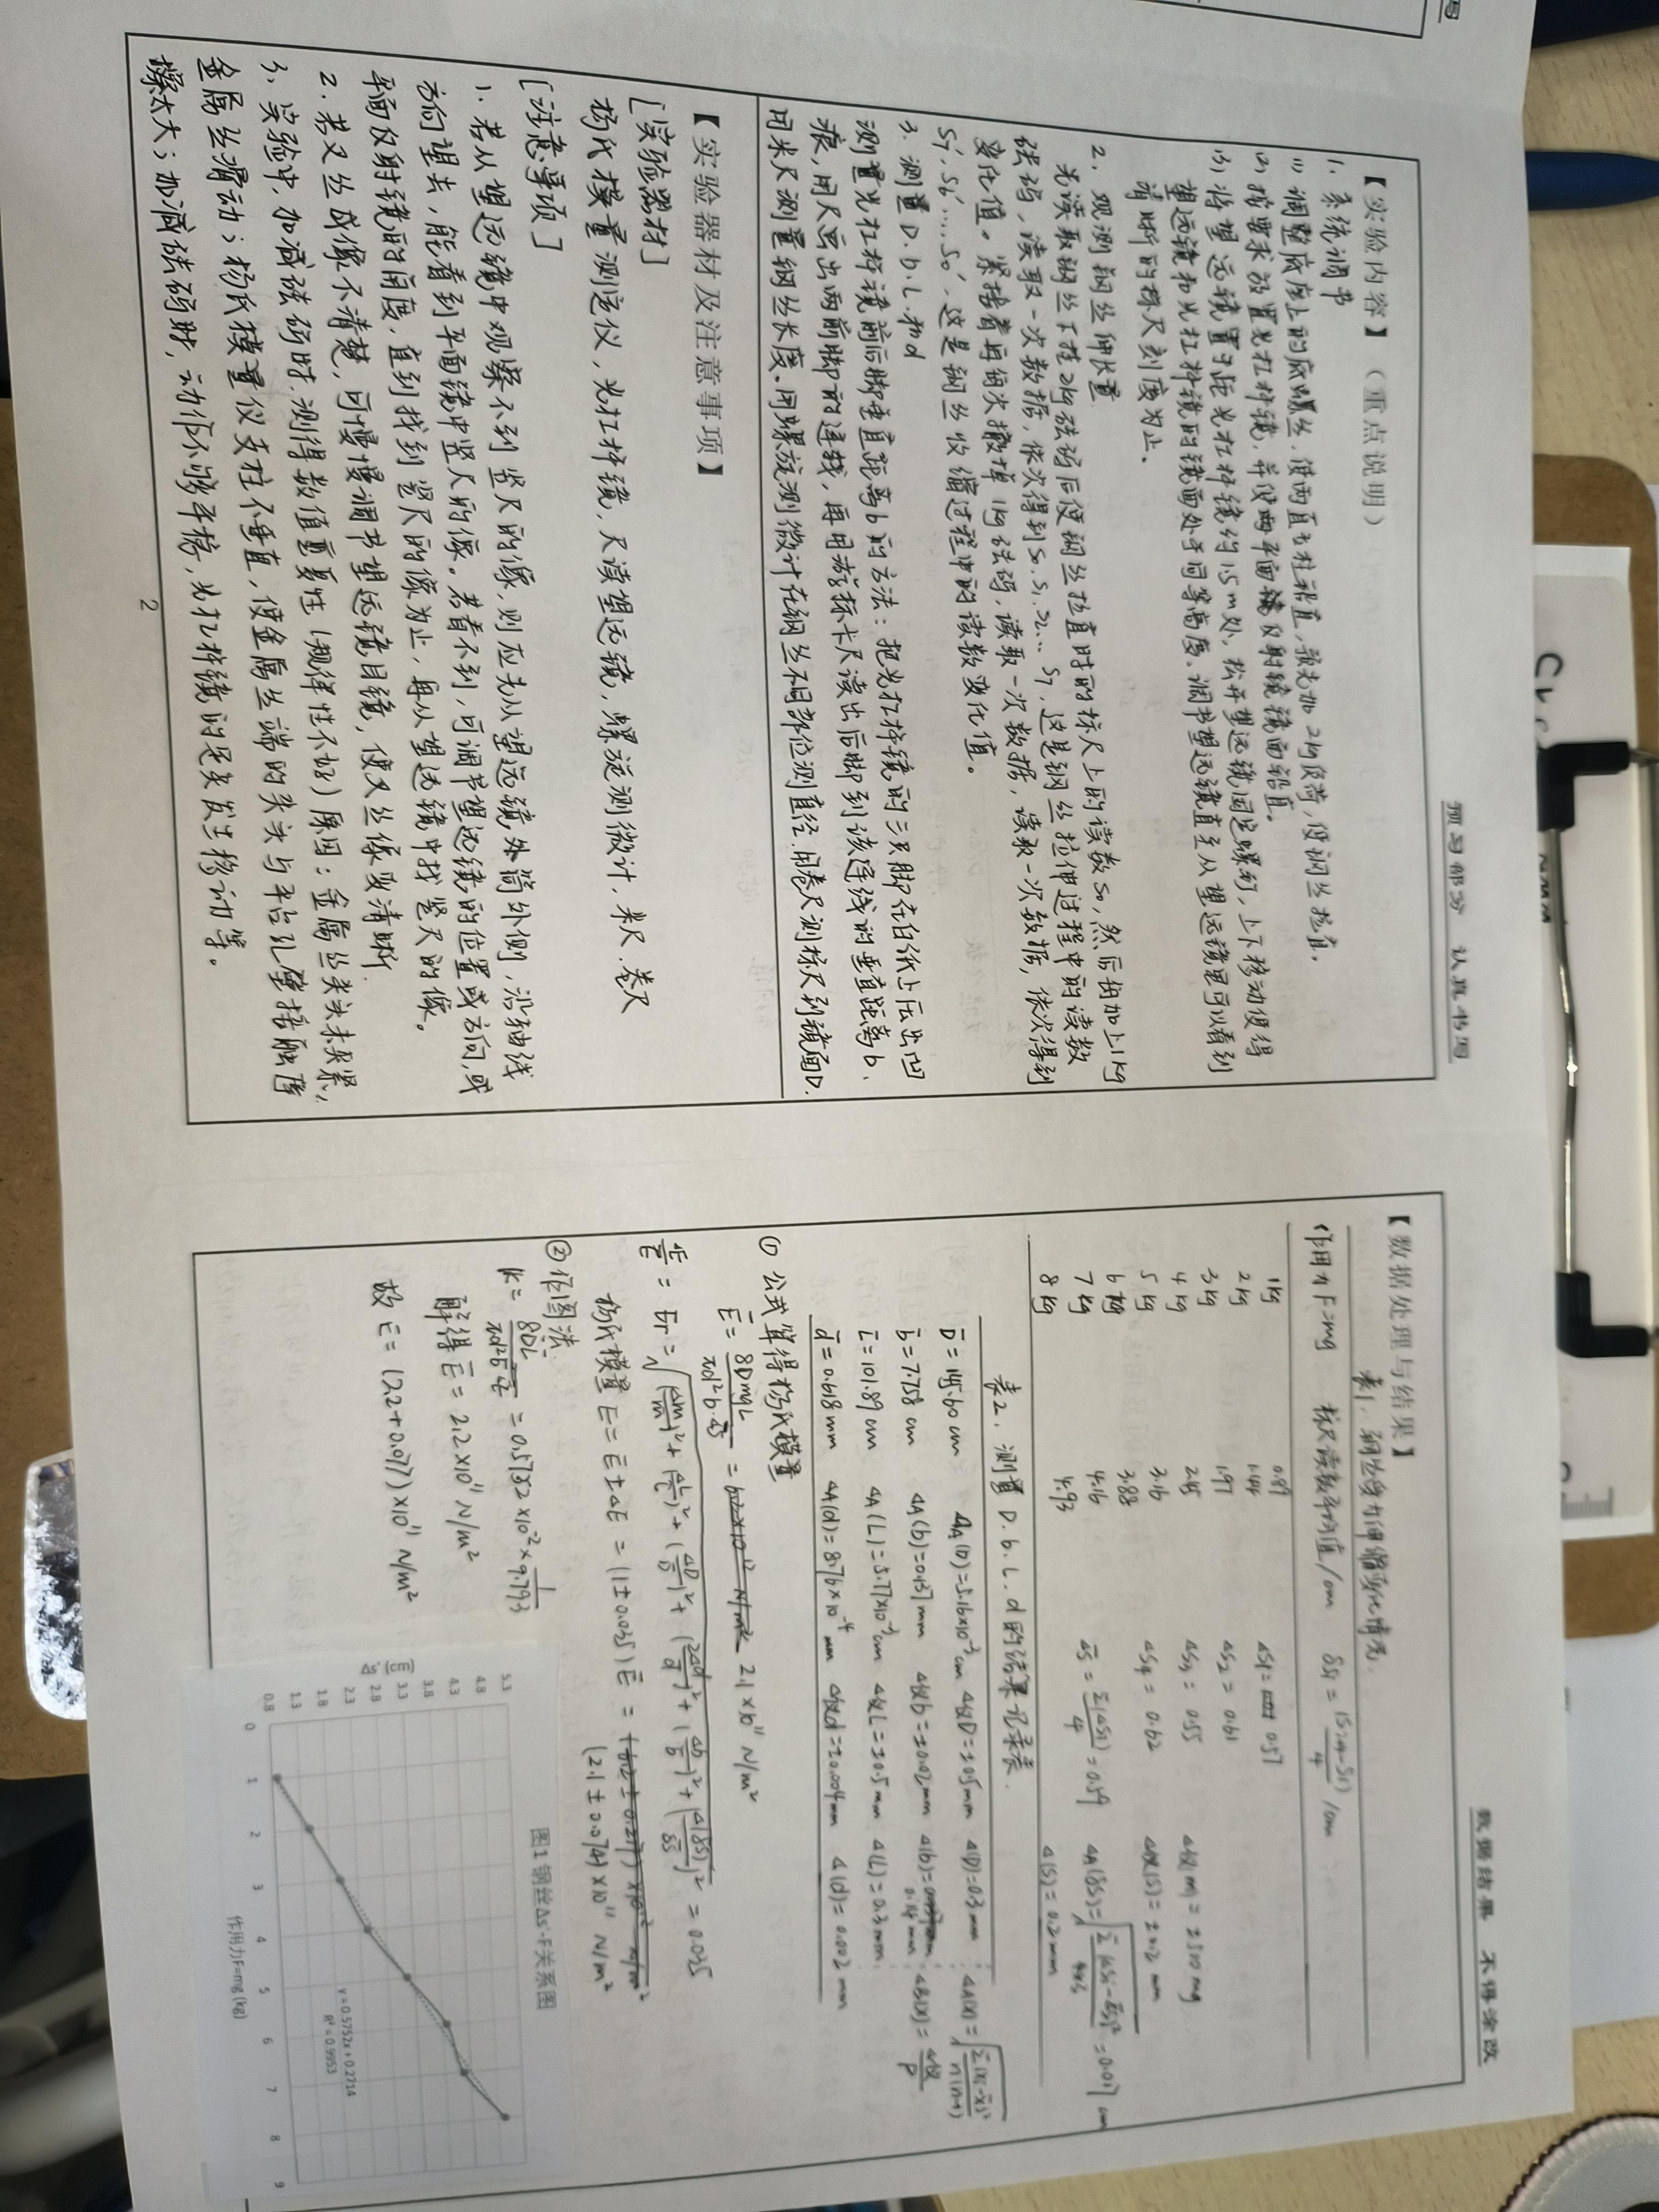 预习部分 认真书写
【实验内容】（重点说明）
1. 系统调节
(1) 调整底座上的底螺丝,使两直立柱铅直,预先加2kg负荷,使钢丝拉直.
(2) 按要求放置光杠杆镜,并使两平面镜反射镜镜面铅直。
(3) 将望远镜置于距光杠杆镜约1.5m处,松开望远镜固定螺钉,上下移动使得
望远镜和光杠杆镜的镜面处于同等高度。调节望远镜直至从望远镜里可以看到
清晰的标尺刻度为止.
2. 观测钢丝伸长量
先读取钢丝下挂2kg砝码后使钢丝拉直时的标尺上的读数S₀,然后每加上1kg
砝码,读取一次数据,依次得到S₀.S₁.S₂...S₇,这是钢丝拉伸过程中的读数
变化值。紧接着再每次撤掉1kg砝码,读取一次数据,读取一次数据,依次得到
S₇′,S₆′...,S₀′,这是钢丝收缩过程中的读数变化值。
3. 测量D.b.L.和d
测量光杠杆镜前后脚垂直距离b的方法：把光杠杆镜的三只脚在白纸上压出凹
痕,用尺画出两前脚的连线,再用游标卡尺读出后脚到该连线的垂直距离b.
用米尺测量钢丝长度.用螺旋测微计在钢丝不同部位测直径.用卷尺测标尺到镜面D.
【实验器材及注意事项】
[实验器材]
杨氏模量测定仪,光杠杆镜,尺读望远镜,螺旋测微计,米尺.卷尺
[注意事项]
1. 若从望远镜中观察不到竖尺的像,则应先从望远镜外筒外侧,沿轴线
方向望去,能看到平面镜中竖尺的像。若看不到,可调节望远镜的位置或方向,或
平面反射镜的角度,直到找到竖尺的像为止,再从望远镜中找竖尺的像。
2. 若叉丝成像不清楚,可慢慢调节望远镜目镜,使叉丝像变清晰.
3. 实验中,加减砝码时,测得数值重复性(规律性不好)原因：金属丝夹头未夹紧,
金属丝滑动；杨氏模量仪支柱不垂直,使金属丝端的夹头与平台孔壁接触摩
擦太大；加减砝码时,动作不够平稳,光杠杆镜的足尖发生移动等。
2
数据结果 不得涂改
【数据处理与结果】
表1. 钢丝受力伸缩变化情况.
作用力F=mg 标尺读数平均值/cm δSi = (Si+4-Si)/4 /cm
1kg 0.89 ΔS1= 0.57
2kg 1.44 ΔS2 = 0.61
3kg 1.97 ΔS3 = 0.55 Δ仪(m) = ±500 mg
4kg 2.45 ΔS4 = 0.62 Δ仪(S) = ±0.2 mm
5kg 3.16
6kg 3.88 Δ̄S = Σ(ΔSi)/4 = 0.59 ΔA(δS)=√(Σ(ΔSi-Δ̄S)²/4×3) = 0.017 cm
7kg 4.16
8kg 4.93 Δ(S) = 0.2mm
表2. 测量D.b.L.d的结果记录表.
D̄ = 145.60 cm ΔA(D)=5.16×10⁻³cm Δ仪D=±0.5mm Δ(D)=0.3mm ΔA(x)=√(Σ(xi-x̄)²/n(n-1))
b̄ = 7.758 cm ΔA(b)=0.137mm Δ仪b=±0.02mm Δ(b)=0.14mm ΔB(x)=Δ仪/P
L̄=101.89cm ΔA(L)=5.77×10⁻³cm Δ仪L=±0.5mm Δ(L)=0.3mm
d̄=0.618mm ΔA(d)=8.76×10⁻⁴mm Δ仪d=±0.004mm Δ(d)=0.002mm
① 公式算得杨氏模量
Ē = 8DmgL/πd²b·Δ̄S = 6.2×10¹² N/m² 2.1×10¹¹ N/m²
ΔE/Ē = Er = √((Δm/m)²+(ΔL/L)²+(ΔD/D)²+(2Δd/d)²+(Δb/b)²+(Δ(δS)/δS)²) = 0.035
杨氏模量E=Ē±ΔE = (1±0.035)Ē = (6.2±0.217)×10¹² N/m²
(2.1±0.074)×10¹¹ N/m²
② 作图法
K = 8D̄L̄/πd̄²b̄Ē = 0.5752×10⁻²×1/9.793
解得Ē = 2.2×10¹¹ N/m²
故E = (2.2+0.077)×10¹¹ N/m²
图1 钢丝Δs'-F关系图
5.3
4.8
4.3
3.8
3.3
2.8
2.3
1.8
1.3
0.8
Δs' (cm)
y = 0.5752x + 0.2714
R² = 0.9953
0 1 2 3 4 5 6 7 8 9
作用力F=mg (kg)